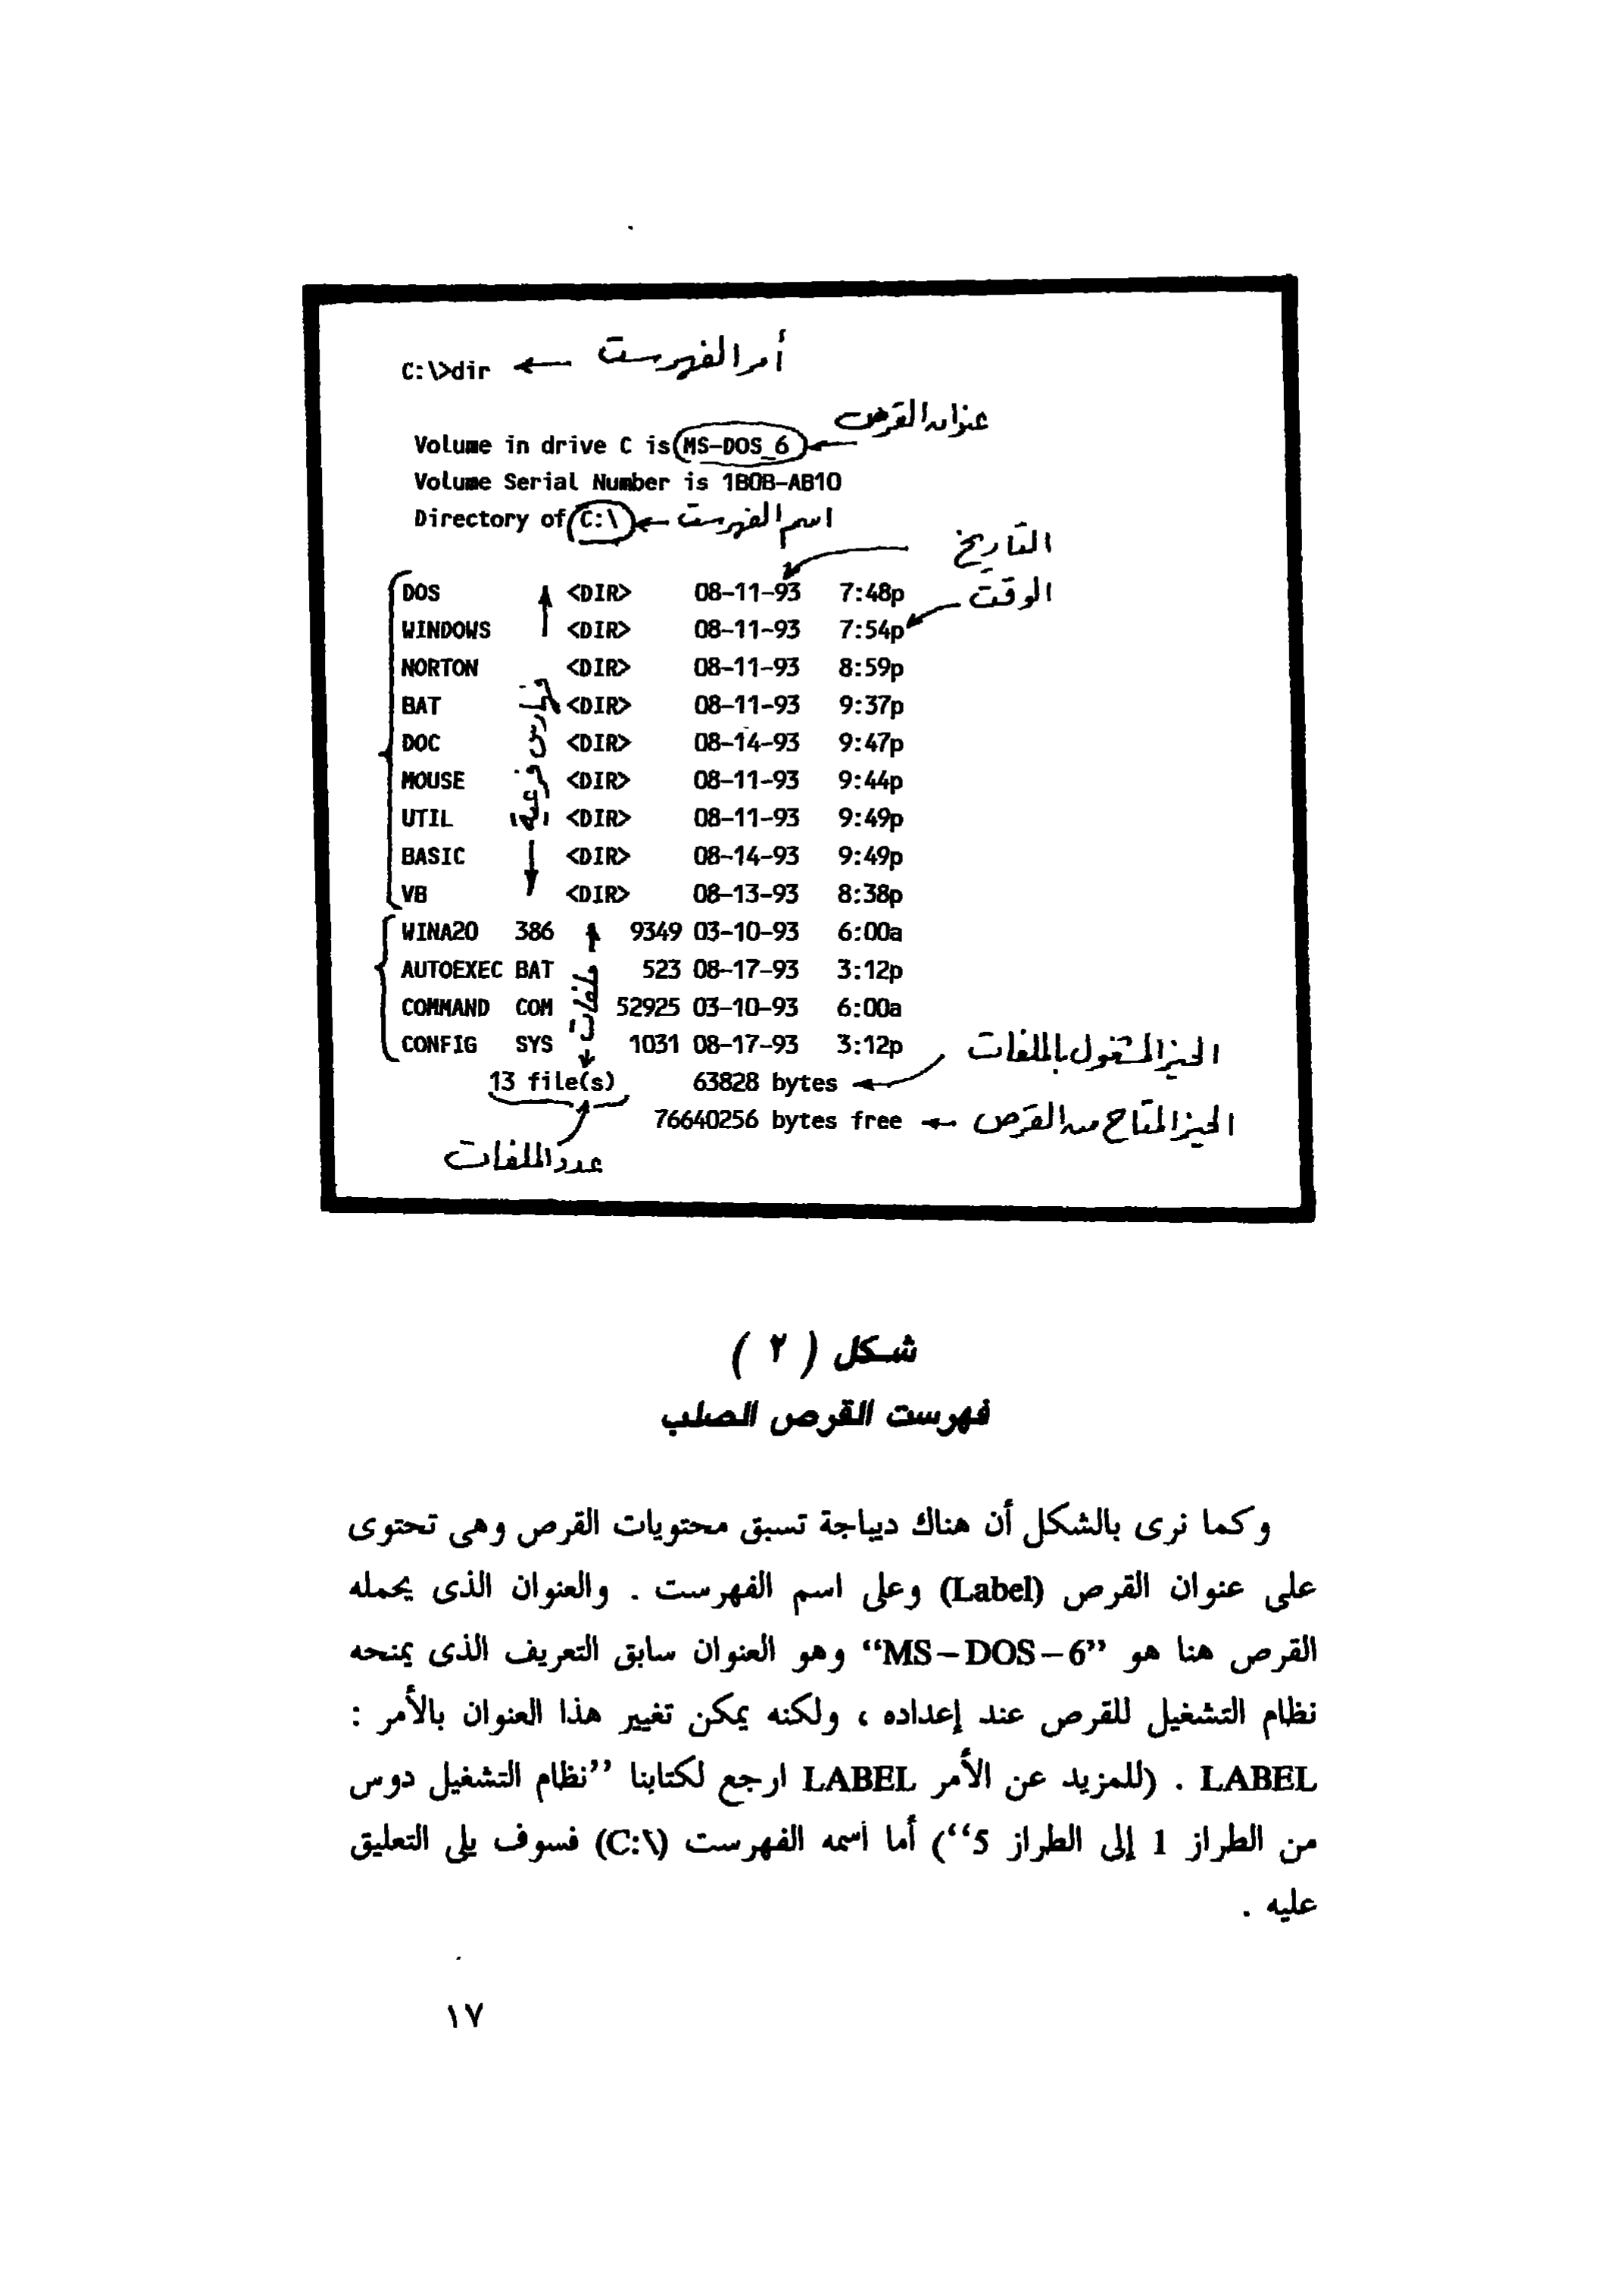 C:\>dir ← أمر الفهرست
عنوان القرص
Volume in drive C is MS-DOS_6 ←
Volume Serial Number is 1B0B-AB10
Directory of C:\ ← اسم الفهرست
التاريخ
DOS <DIR> 08-11-93 7:48p الوقت
WINDOWS <DIR> 08-11-93 7:54p
NORTON <DIR> 08-11-93 8:59p
BAT <DIR> 08-11-93 9:37p
DOC <DIR> 08-14-93 9:47p
MOUSE <DIR> 08-11-93 9:44p
UTIL <DIR> 08-11-93 9:49p
BASIC <DIR> 08-14-93 9:49p
VB <DIR> 08-13-93 8:38p
فهارس فرعية
WINA20 386 9349 03-10-93 6:00a
AUTOEXEC BAT 523 08-17-93 3:12p
COMMAND COM 52925 03-10-93 6:00a
CONFIG SYS 1031 08-17-93 3:12p
ملفات
13 file(s) 63828 bytes ← الحيز المشغول بالملفات
76640256 bytes free ← الحيز المتاح من القرص
عدد الملفات
شكل ( ٢ )
فهرست القرص الصلب
وكما نرى بالشكل أن هناك ديباجة تسبق محتويات القرص وهى تحتوى
على عنوان القرص (Label) وعلى اسم الفهرست . والعنوان الذى يحمله
القرص هنا هو “MS–DOS–6” وهو العنوان سابق التعريف الذى يمنحه
نظام التشغيل للقرص عند إعداده ، ولكنه يمكن تغيير هذا العنوان بالأمر :
LABEL . (للمزيد عن الأمر LABEL ارجع لكتابنا ”نظام التشغيل دوس
من الطراز 1 إلى الطراز 5“) أما اسمه الفهرست (C:\) فسوف يلى التعليق
عليه .
١٧